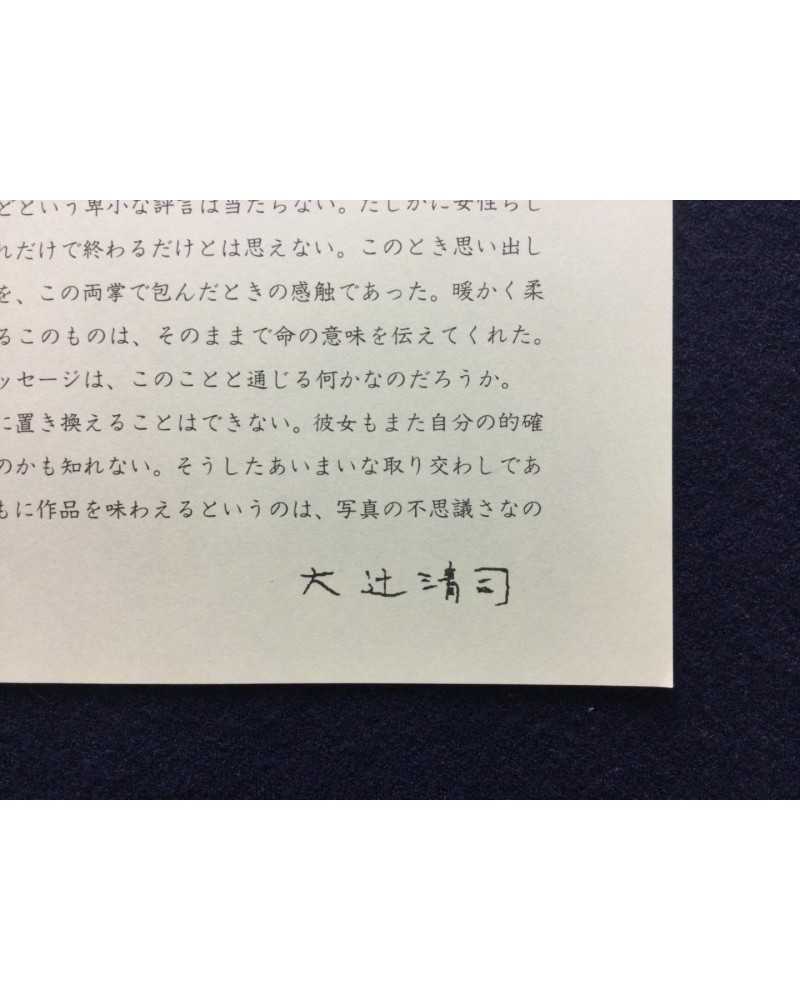 どという卑小な評言は当たらない。たしかに女性らし
れだけで終わるだけとは思えない。このとき思い出し
を、この両掌で包んだときの感触であった。暖かく柔
るこのものは、そのままで命の意味を伝えてくれた。
ッセージは、このことと通じる何かなのだろうか。
に置き換えることはできない。彼女もまた自分の的確
のかも知れない。そうしたあいまいな取り交わしであ
もに作品を味わえるというのは、写真の不思議さなの
大辻清司